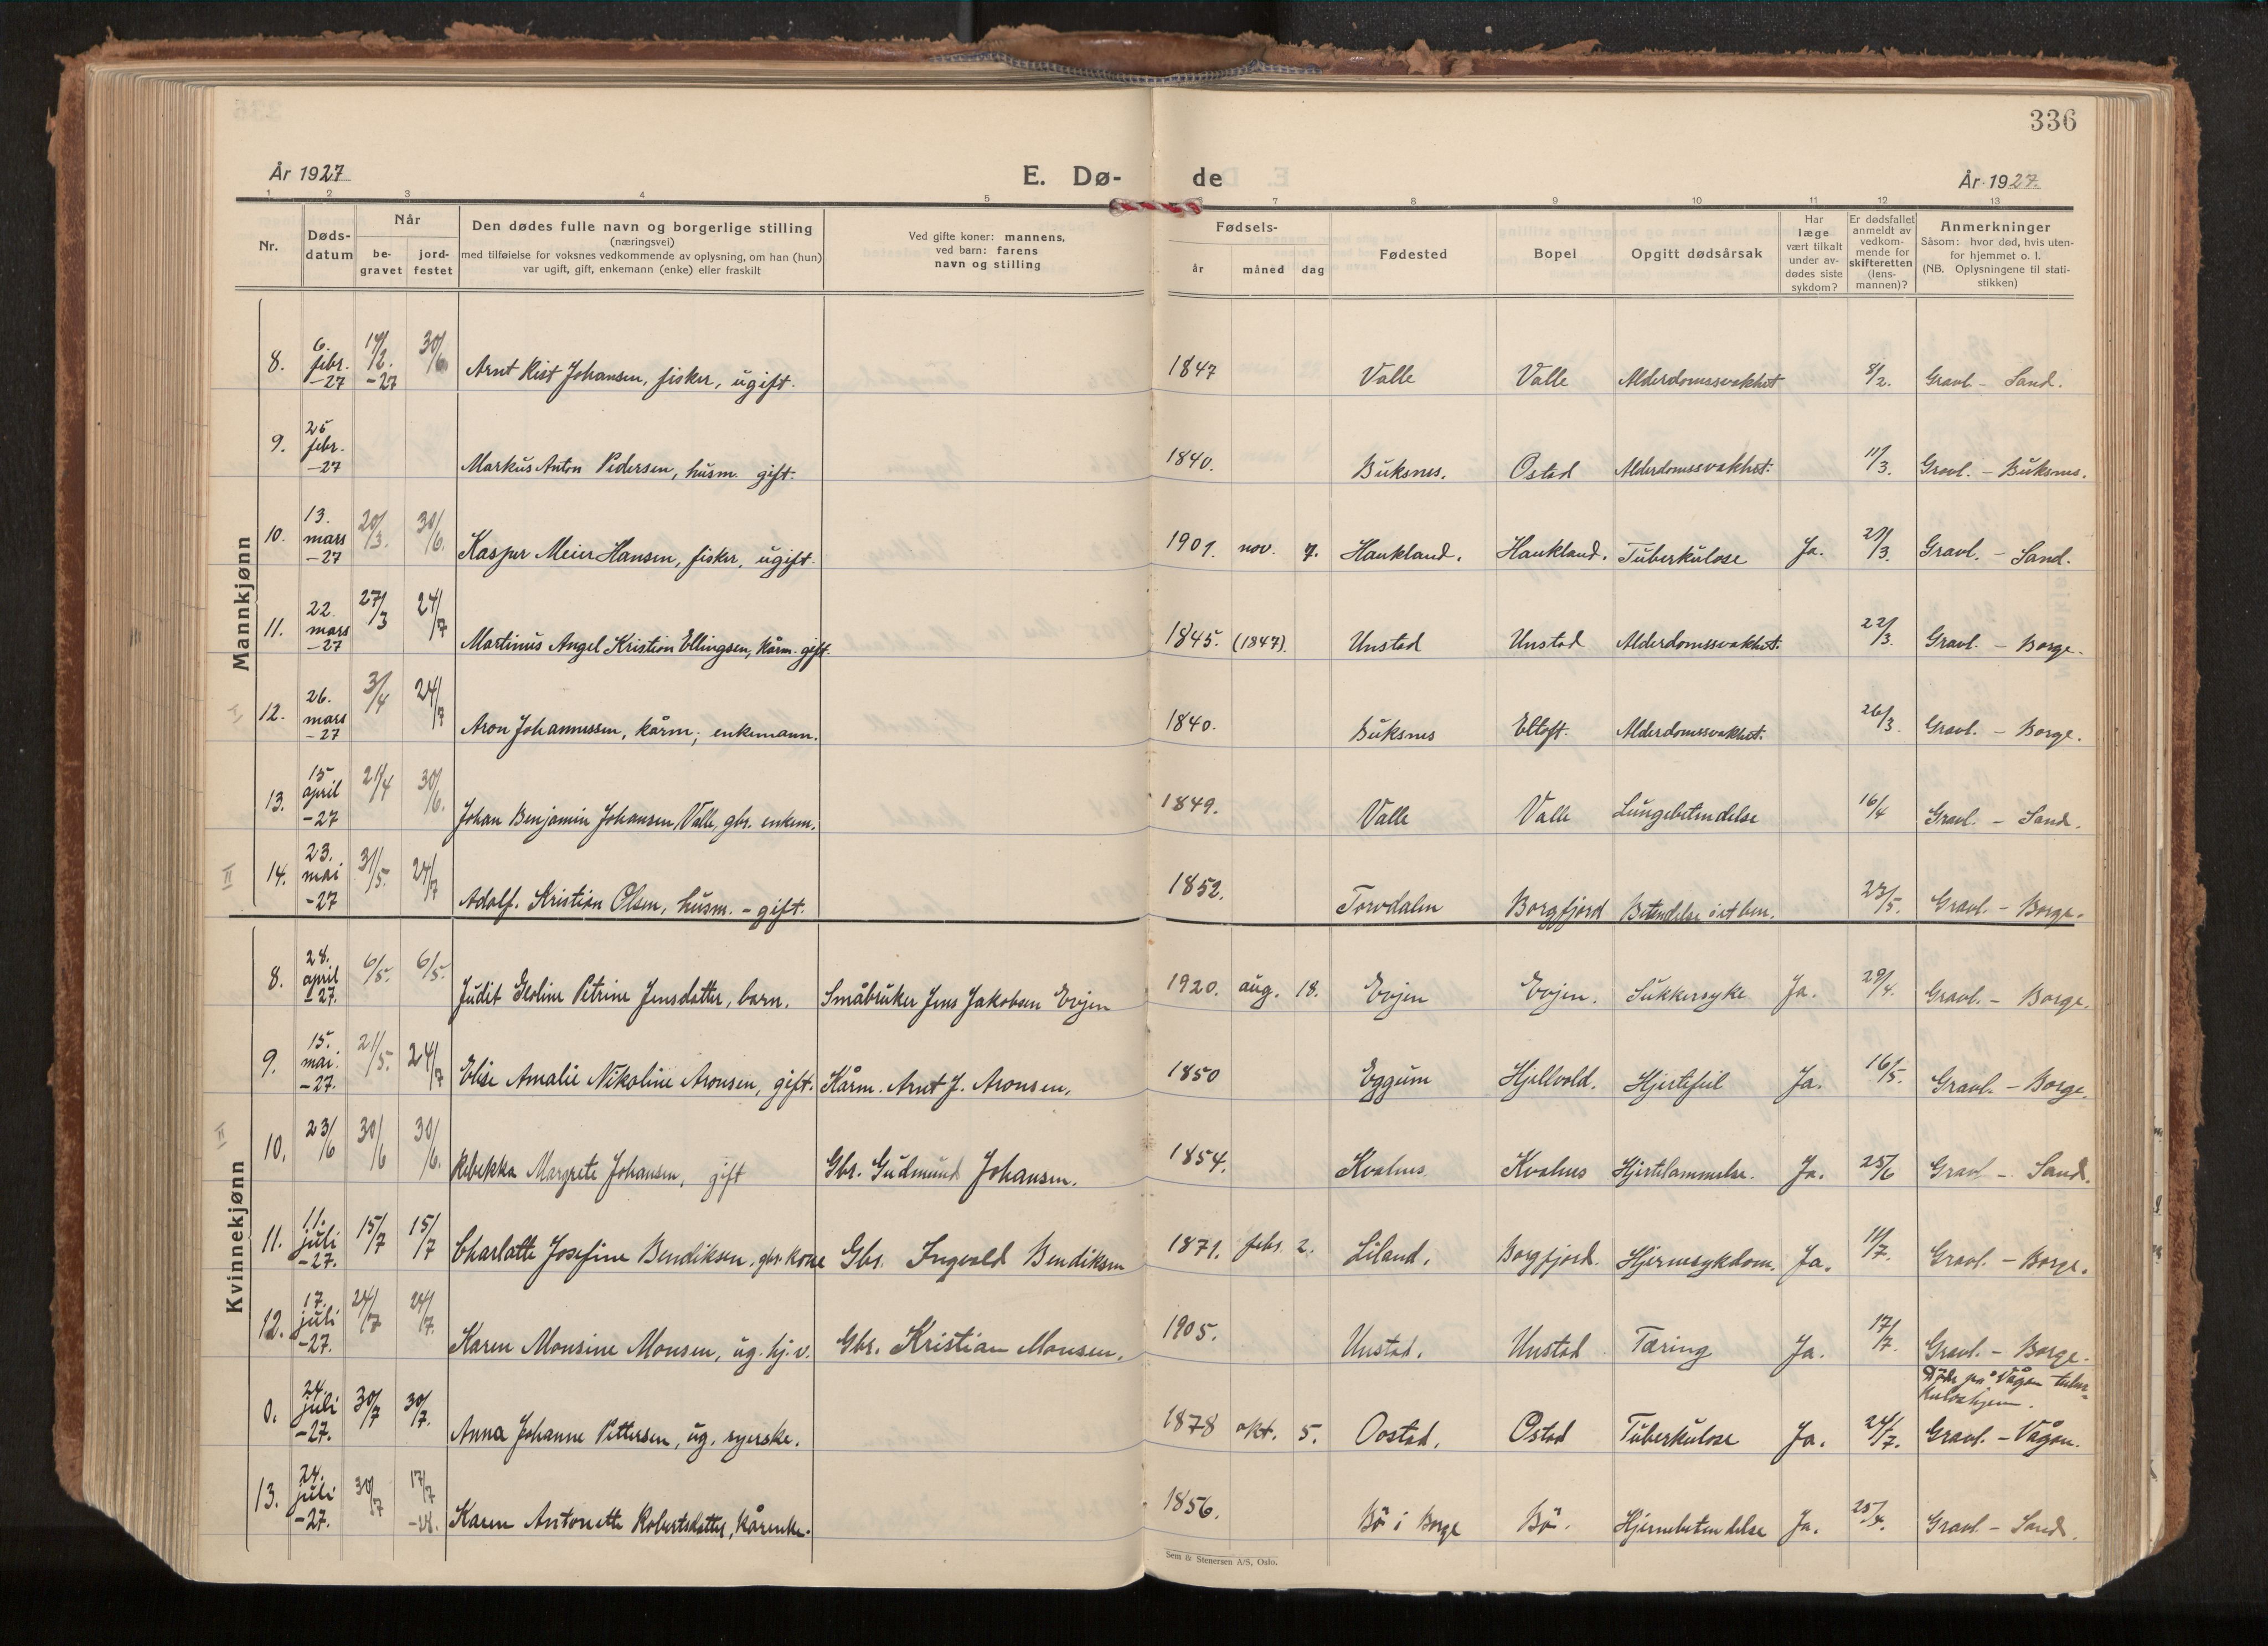 336
År 1927
E. Dø- de
År 1927.
1 2 3 4 5 6 7 8 9 10 11 12 13
Nr.
Døds-
datum
Når
be-
gravet
jord-
festet
Den dødes fulle navn og borgerlige stilling
(næringsvei)
med tilføielse for voksnes vedkommende av oplysning, om han (hun)
var ugift, gift, enkemann (enke) eller fraskilt
Ved gifte koner: mannens,
ved barn: farens
navn og stilling
Fødsels-
år måned dag
Fødested
Bopel
Opgitt dødsårsak
Har
læge
vært tilkalt
under av-
dødes siste
sykdom?
Er dødsfallet
anmeldt av
vedkom-
mende for
skifteretten
(lens-
mannen)?
Anmerkninger
Såsom: hvor død, hvis uten-
for hjemmet o. l.
(NB. Oplysningene til stati-
stikken)
Mannkjønn
8. 6. febr. -27 14/2. -27 30/6 Arnt Kist Johansen, fisker, ugift. 1847 Valle Valle Alderdomssvakhet 8/2. Gravl. - Sand.
9. 25 febr. -27 Markus Anton Pedersen, husm. gift. 1840. Buksnes. Ostad Alderdomssvakhet. 11/3. Gravl. - Buksnes.
10. 13. mars -27 20/3. 30/6. Kaspar Meier Hansen, fisker, ugift. 1901. nov. 7. Haukland. Haukland. Tuberkulose Ja. 29/3. Gravl. - Sand.
11. 22. mars -27 27/3 24/7 Martinus Angel Kristian Ellingsen, kårm. gift. 1845. (1847). Unstad Unstad Alderdomssvakhet. 22/3. Gravl. - Borge.
12. 26. mars -27 3/4 24/7 Aron Johannessen, kårm; enkemann. 1840. Buksnes Eltoft. Alderdomssvakhet. 26/3. Gravl. - Borge.
13. 15 april -27 21/4 30/6. Johan Benjamin Johansen, Valle, gbr. enkem. 1849. Valle Valle Lungebetendelse 16/4 Gravl. - Sand.
II 14. 23. mai -27 31/5. 24/7 Adolf. Kristian Olsen, husm. - gift. 1852. Torvdalen Borgfjord Betendelse i et ben. 23/5. Gravl. - Borge.
Kvinnekjønn
8. 28. april -27. 6/5. 6/5. Judit Geoline Petrine Jensdatter, barn. Småbruker Jens Jakobsen Evjen 1920. aug. 18. Evjen Evjen. Sukkersyke Ja. 29/4. Gravl. - Borge.
9. 15. mai. -27. 21/5. 24/7 Elise Amalie Nikoline Aronsen, gift. Kårm. Arnt J. Aronsen. 1850 Eggum Hjellvold. Hjertefeil Ja. 16/5. Gravl. - Borge.
II 10. 23/6 30/6 30/6. Rebekka Margrete Johansen, gift Gbr. Gudmund Johansen. 1854. Kvalnes. Kvalnes Hjertelammelse. Ja. 25/6 Gravl - Sand.
11. 11. juli -27. 15/7 15/7 Charlotte Josefine Bendiksen, gbr. kone Gbr. Ingvald Bendiksen 1871. febr. 2. Liland. Borgfjord. Hjernesykdom. Ja. 11/7. Gravl. - Borge.
12. 17. juli -27. 24/7 24/7. Karen Monsine Monsen, ug. hj. v. Gbr. Kristian Monsen. 1905. Unstad. Unstad Tæring Ja. 17/7. Gravl. - Borge.
Døde på Vågan tuber-
kulosehjem.
0. 24. juli -27. 30/7 30/7. Anna Johanne Pettersen, ug. syerske. 1878 okt. 5. Oostad. Ostad Tuberkulose Ja. 24/7. Gravl. - Vågan.
13. 24. juli -27. 30/7 17/7 -28. Karen Antonette Robertsdatter, kårenke. 1856. Bö i Borge Bö. Hjernebetendelse Ja. 25/7. Gravl - Sand.
Sem & Stenersen A/S, Oslo.